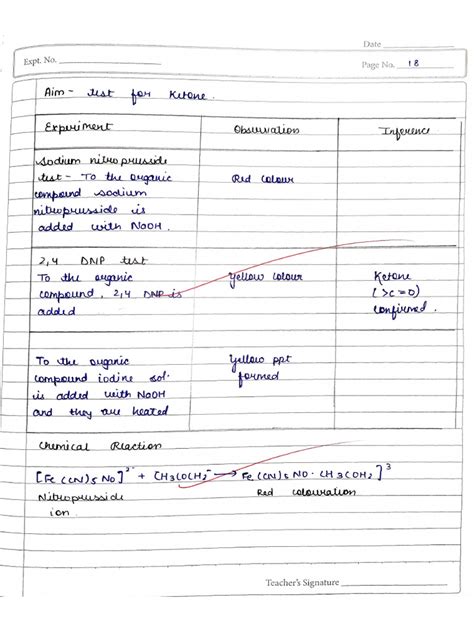 Date
Expt. No.
Page No. 18
Aim - test for Ketone.
Experiment Observation Inference
Sodium nitroprusside
test - To the organic Red colour
compound sodium
nitroprusside is
added with NaOH.
2,4 DNP test
To the organic Yellow colour Ketone
compound, 2,4 DNP is (>C=O)
added confirmed.
To the organic Yellow ppt
compound iodine sol. formed
is added with NaOH
and they are heated
Chemical Reaction
[Fe(CN)5NO]2- + CH3COCH2- → Fe(CN)5NO·CH3COH2]3
Nitroprusside Red colouration
ion.
Teacher's Signature